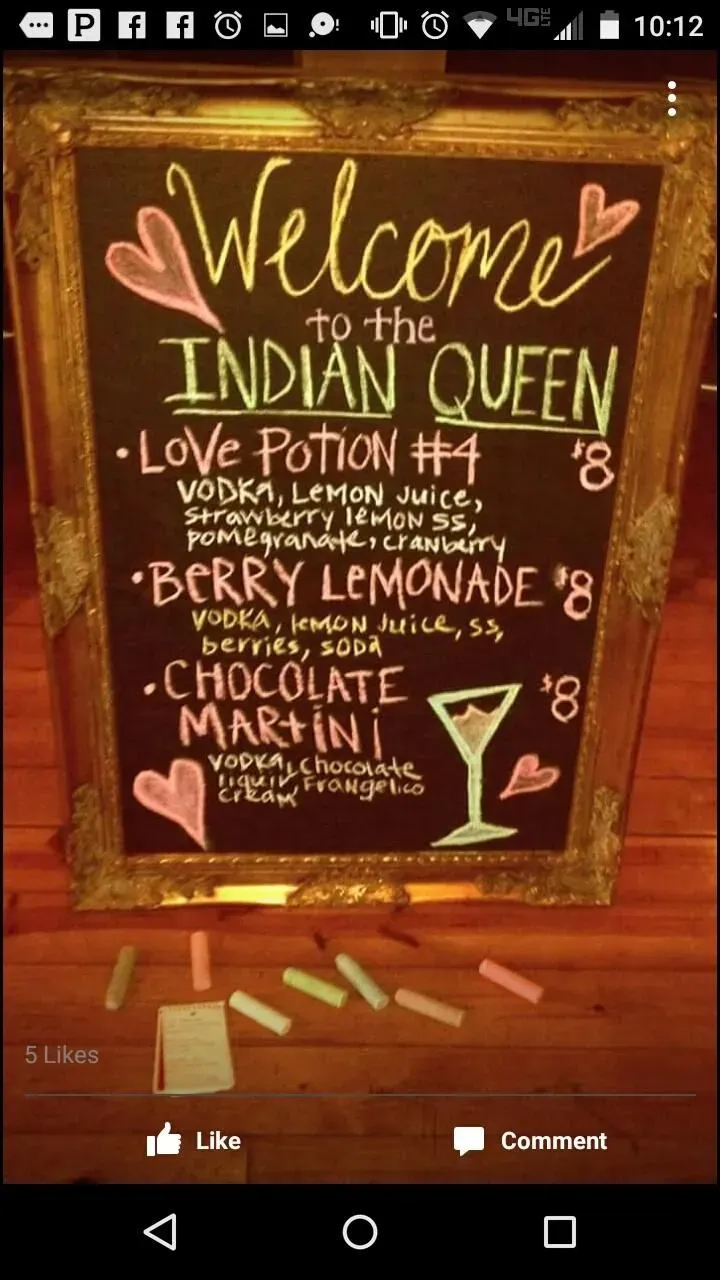 4G LTE
10:12
Welcome
to the
INDIAN QUEEN
• LOVE POTION #4 $8
VODKA, LEMON JUICE,
Strawberry lemon ss,
pomegranate, cranberry
• BERRY LEMONADE $8
VODKA, lemon Juice, ss,
berries, SODA
• CHOCOLATE $8
MARTINI
VODKA, Chocolate
liquir, Frangelico
cream
5 Likes
Like
Comment